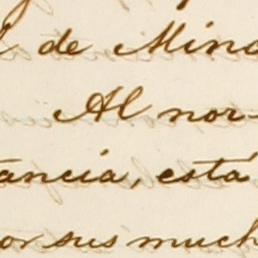 de Mind
Al nor-
tancia, está
or sus much